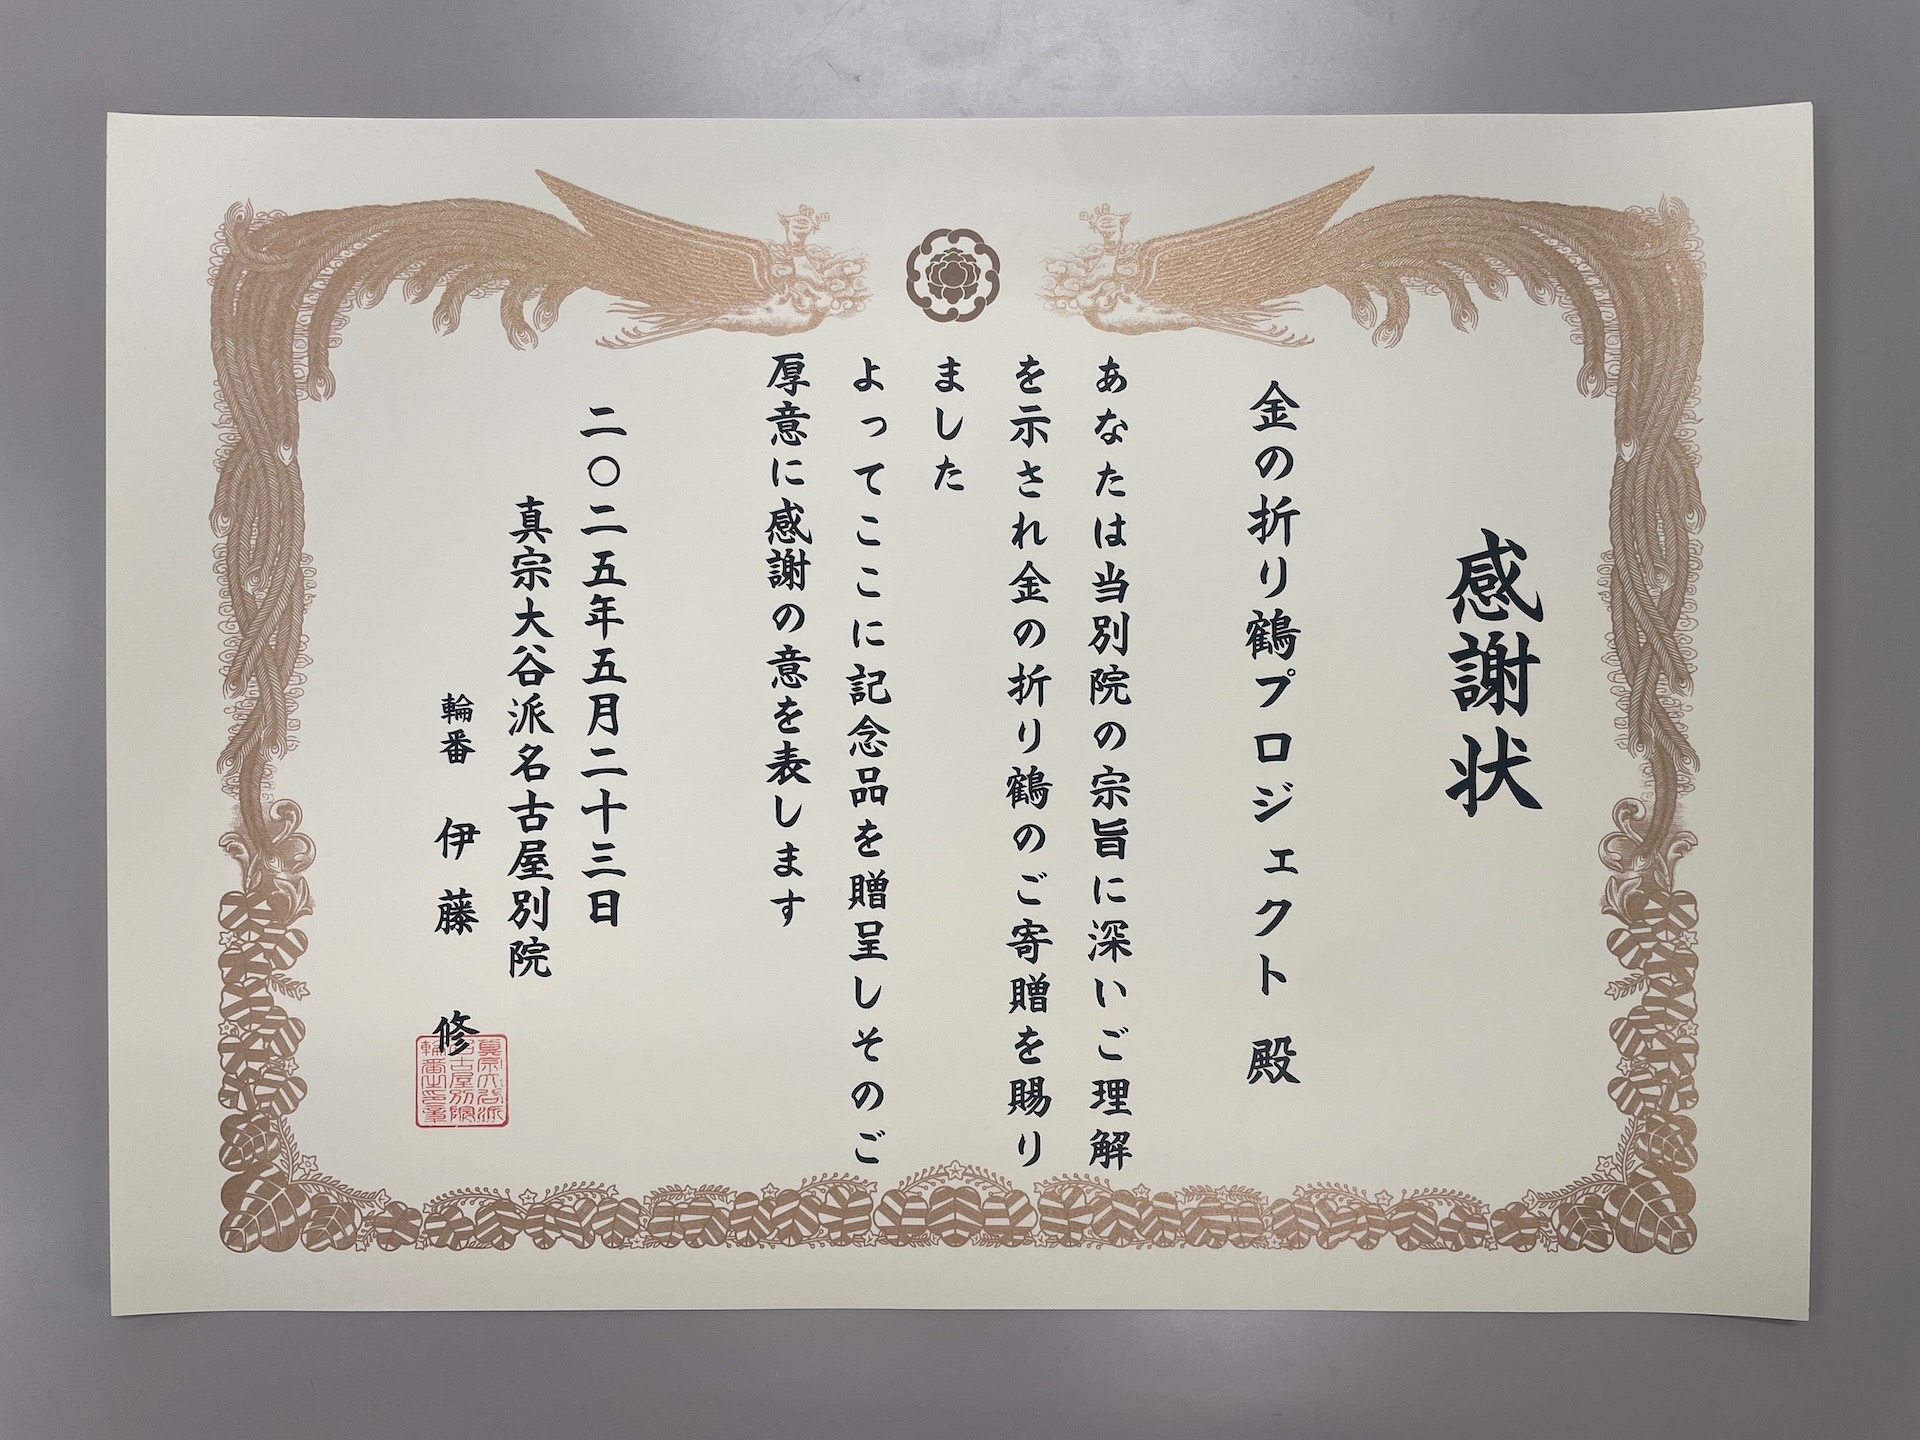 感謝状
金の折り鶴プロジェクト 殿
あなたは当別院の宗旨に深いご理解
を示され金の折り鶴のご寄贈を賜り
ました
よってここに記念品を贈呈しそのご
厚意に感謝の意を表します
二〇二五年五月二十三日
真宗大谷派名古屋別院
輪番 伊藤 修
真宗大谷派
名古屋別院
輪番之印章